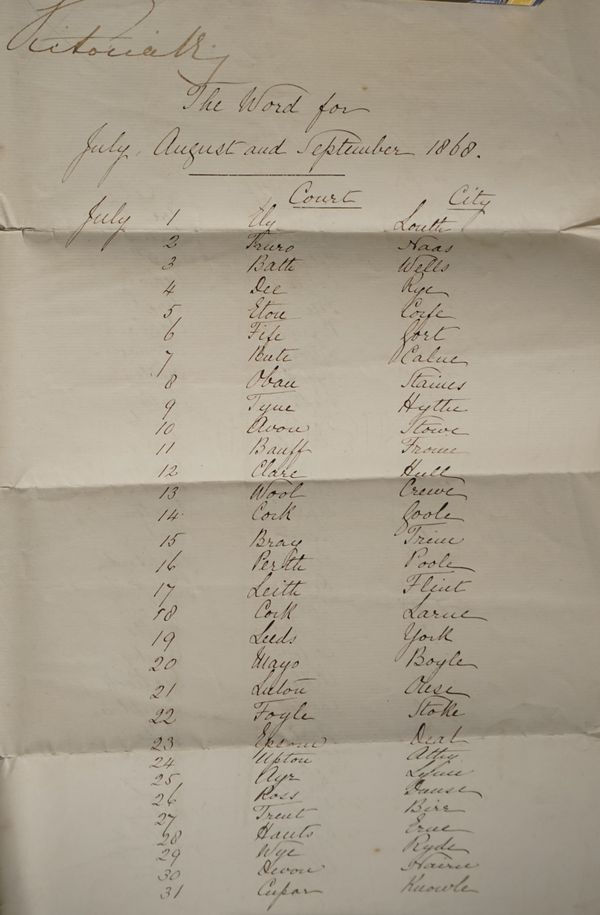 Victoria R
The Word for
July, August and September 1868.
Court City
July 1 Ely Louth
2 Truro Naas
3 Bath Wells
4 Dee Rye
5 Eton Corfe
6 Fife Gort
7 Bute Calne
8 Oban Staines
9 Tyne Hythe
10 Avon Stowe
11 Banff Frome
12 Clare Hull
13 Wool Crewe
14 Cork Goole
15 Bray Trim
16 Perth Poole
17 Leith Flint
18 Cork Larne
19 Leeds York
20 Mayo Boyle
21 Luton Ouse
22 Foyle Stoke
23 Epsom Deal
24 Upton Athy
25 Ayr Lynn
26 Ross
27 Trent Birr
28 Hants Erne
29 Wye Ryde
30 Devon Nairn
31 Cupar Knowle